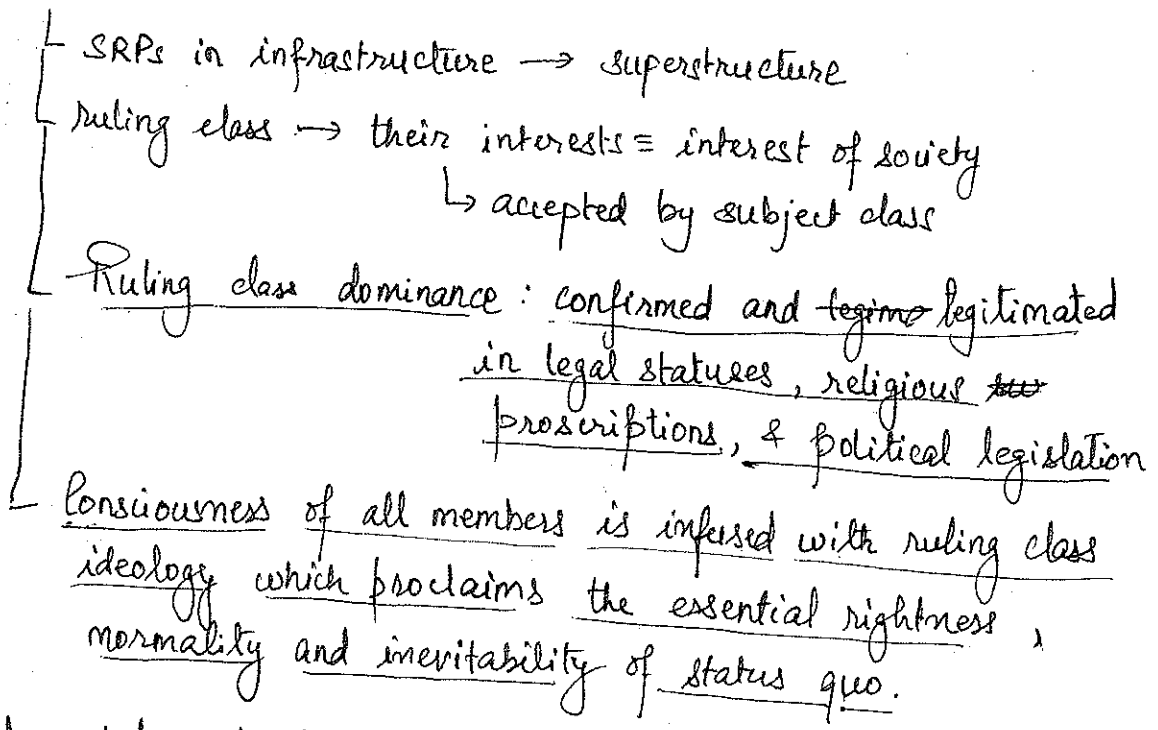 SRPs in infrastructure → superstructure
ruling class → their interests ≡ interest of society
↳ accepted by subject class
Ruling class dominance : confirmed and legitimated
in legal statuses, religious
proscriptions, & political legislation
Consciousness of all members is infused with ruling class
ideology which proclaims the essential rightness,
normality and inevitability of status quo.